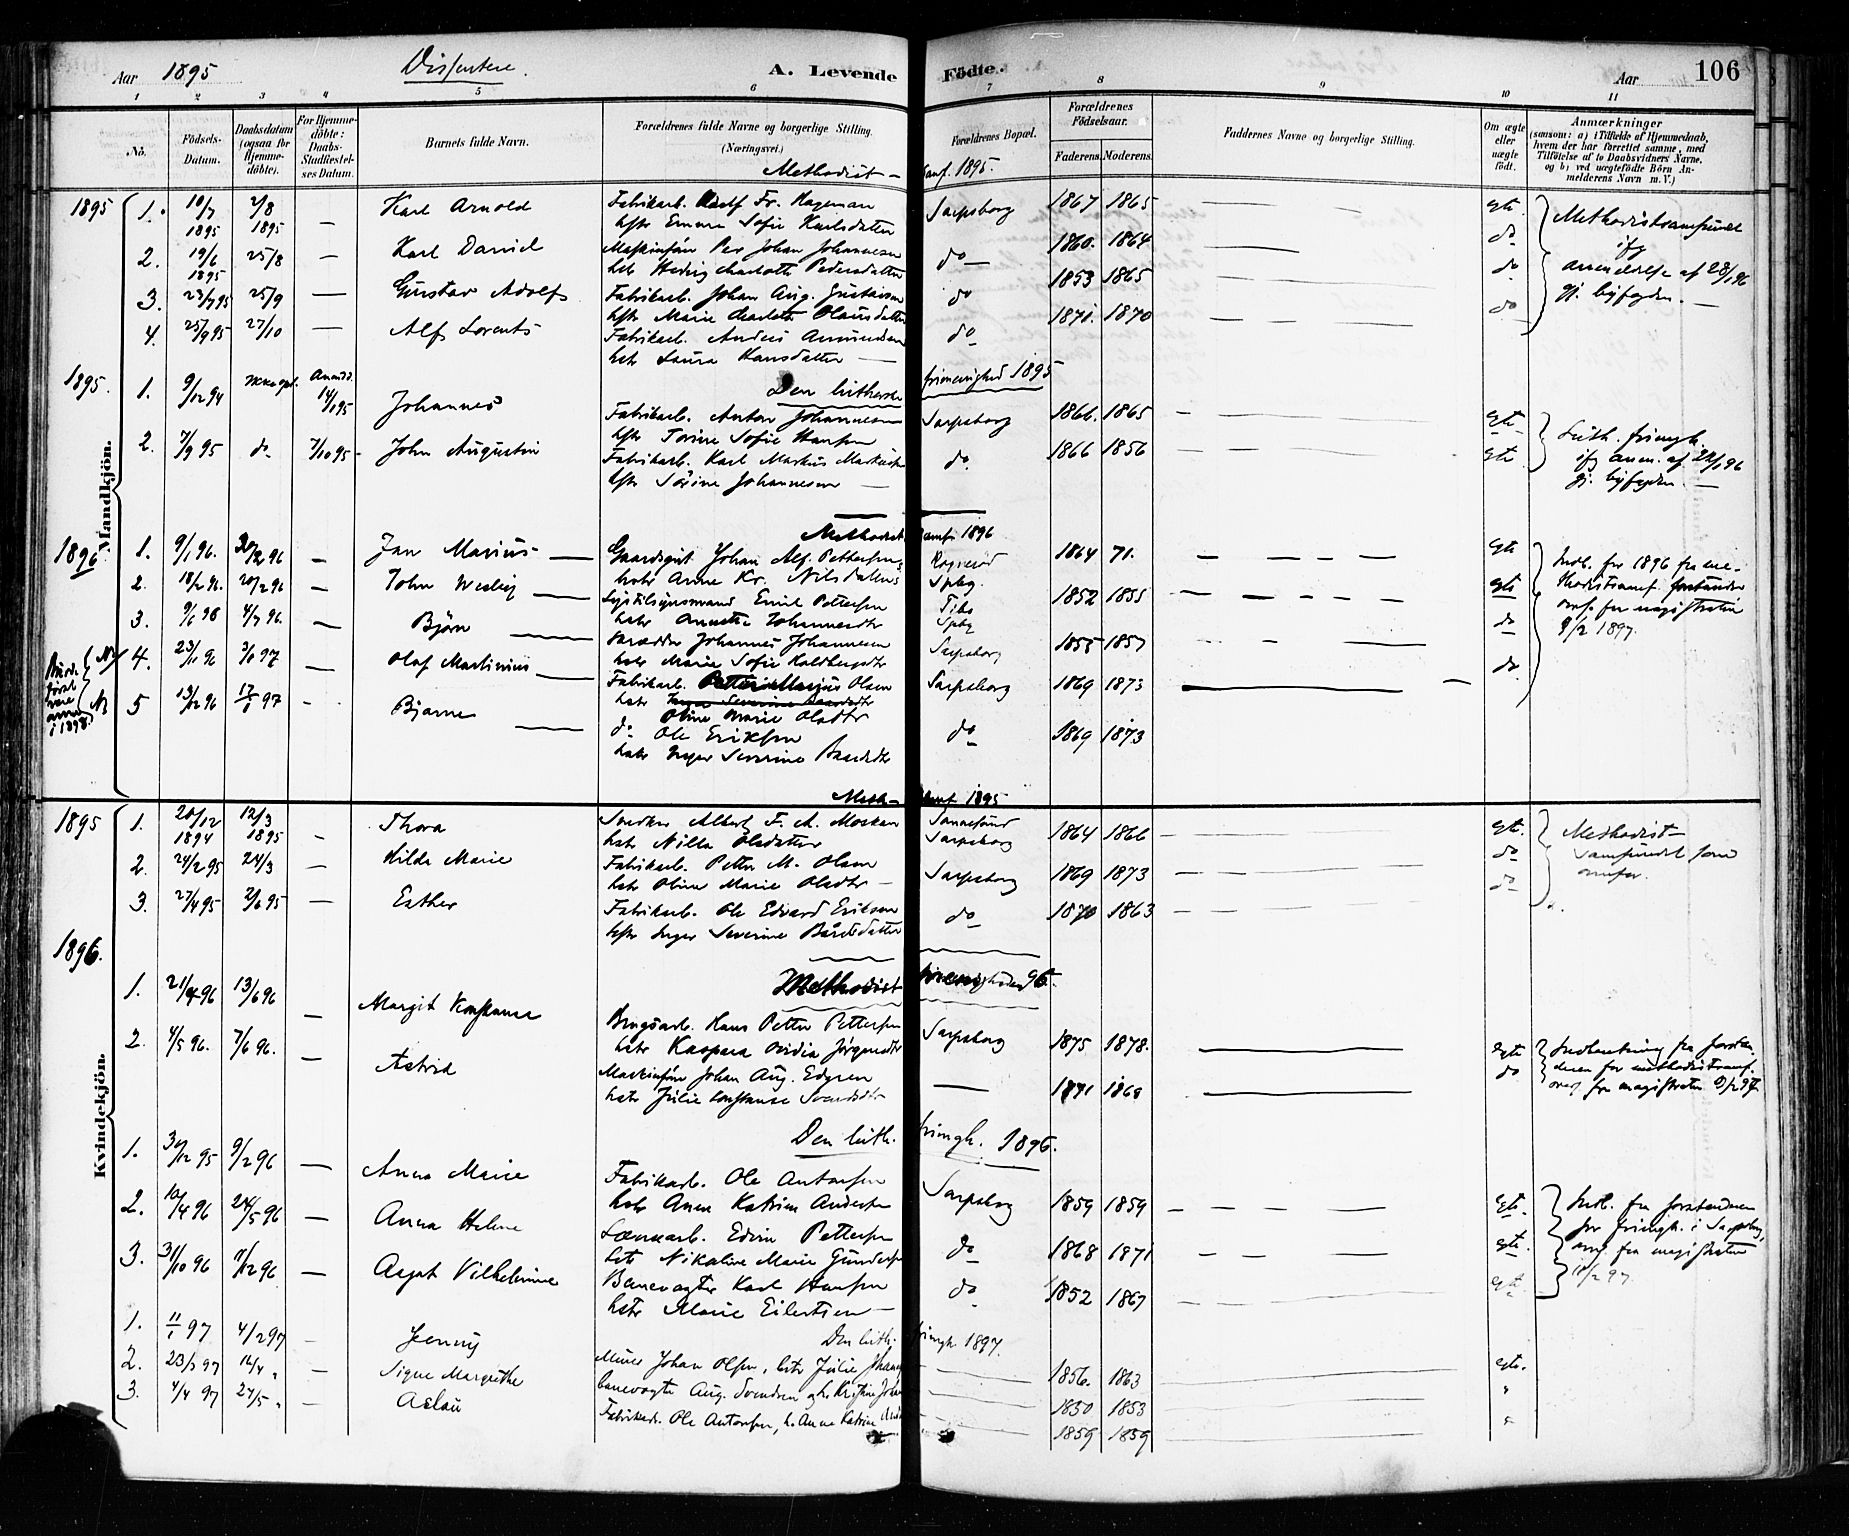 Aar 1895 Dissentere. A. Levende Födte. Aar 106
1 2 3 4 5 6 7 8 9 10 11
No. Födsels-Datum. Daabsdatum (ogsaa for Hjemme-döbte). For Hjemme-döbte: Daabs-Stadfæstel-ses Datum. Barnets fulde Navn. Forældrenes fulde Navne og borgerlige Stilling. (Næringsvei.) Forældrenes Bopæl. Forældrenes Födselsaar. Faderens. Moderens. Faddernes Navne og borgerlige Stilling. Om ægte eller uægte født. Anmærkninger (saasom: a) i Tilfælde af Hjemmedaab, hvem der har forrettet samme, med Tilføielse af to Daabsvidners Navne, og b) ved uægtefödte Börn Anmelderens Navn m. V.)
Mandkjön.
Methodist- samf. 1895.
1895 1. 10/7 1895 2/8 1895 — Karl Arnold Fabrikarb. Fr. Hageman Sarpsborg 1867 1865 egte. Methodistsamfundet
hstr Emma Sofie Karlsdatter
2. 19/6 1895 25/8 — Karl David Maskinfør Per Johan Johannesen do 1860. 1864 do ifg
hstr Hedvig Charlotte Pedersdatter anmeldelse af 28/1 96
3. 23/7 95 25/9 — Gustav Adolf Fabrikarb. Johan Aug. Gustavsen do 1853 1865 do gj. byfogden.
hstr Marie Charlotte Olausdatter
4. 25/9 95 27/10 — Alf Lorents Fabrikarb. Anders Amundsen do 1871. 1870 do
hstr Laura Hansdatter
Den lutherske frimenighed 1895
1895. 1. 9/12 94 Ikke opl. Anmdt. 14/1 95 Johannes Fabrikarb. Anton Johannesen Sarpsborg 1866. 1865 egte Luth. frimgh.
hstr Torine Sofie Hansen ifg anm. af 22/1 96
2. 7/9 95 do 7/10 95 John Augustin Fabrikarb. Karl Markus Markussen do. 1866 1856 egte gj. byfogden.
hstr Sørine Johannesen
Methodist samf. 1896
1896 1. 9/1 96. 20/2 96 — Jan Marius Gaardsgut Johan Alf. Pettersen 1864 71. egte Indb. for 1896 fra me-
hstr Anne Kr. Nilsdatter Spbg.
2. 18/2 96. 20/2 96 — John Wesley Emil Pettersen 1852 1855 egte thodistsamf. forstander
hstr Annette Johannesdtr Spbg
3. 9/6 96 4/7 96. — Bjørn Skrædder Johannes Johannesen Sarpsborg 1855 1857 do omf. fra magistraten
hstr Marie Sofie 9/2 1897.
4. 23/11 96 3/1 97 — Olaf Martinius Fabrikarb. Petter Marius Olsen Sarpsborg 1869 1873 do
hstr Oline Marie Olsdtr
5 13/12 96 17/1 97 - Bjarne do Ole Eriksen do 1869 1873
hstr Inger Severine Baardsdtr
i 1898
Kvindekjön.
Meth- samf 1895
1895 1. 20/12 1894 12/3 1895 - Thora Snedker Albert F. A. Sannesund 1864 1866 egte. Methodist-
hstr Nilla Olsdatter Sarpsborg
2. 24/2 95 24/3 — Hilda Marie Fabrikarb. Petter M. Olsen Sarpsborg 1869 1873 do samfundet som
hstr Oline Marie Olsdtr
3. 27/4 95 2/6 95 — Esther Fabrikarb. Ole Edvard Eriksen do 1870 1863 do
hstr Inger Severine Bårdsdatter
1896. Methodist frimenigheden 96.
1. 21/4 96 13/6 96 — Margit Konstanse Brugsarb. Hans Petter Pettersen Sarpsborg 1875 1878. egte Indberetning fra forstan-
hstr Kaspara Ovidia Jørgensdtr
2. 4/5 96. 7/6 96. — Astrid Maskinfør Johan Aug. Edgren — 1871 1868 do deren for methodistsamf.
hstr Julie Konstanse Svendsdtr overs. fra magistraten 9/2 97.
Den luth. frimgh. 1896.
1. 30/12 95 9/2 96 — Anna Marie Fabrikarb. Ole Antonsen Sarpsborg 1859 1859 egte. Indb. fra forstanderen
hstr Anne Katrine Andersen
2. 10/4 96 24/5 96 — Anna Helene Edvin Pettersen do 1868 1871 egte. for frimgh. i Sarpsborg,
hstr Nikoline Marie Gundersen omf. fra magistraten
3. 31/10 96 7/12 96 — Aagot Vilhelmine Banevogter Karl Hansen do 1852 1867 egte 11/2 97.
hstr Marie Eilertsen
Den luth. frimgh 1897.
1. 11/1 97 4/2 97 — Jenny Murer Johan Olsen, hstr Julie 1856. 1863 egte.
2. 23/3 97 12/4 " — Signe Margrethe banevogter Aug. Svendsen og h. Kristine 1850 1853 "
3. 4/4 97 27/5 " — Aslau Fabrikarb. Ole Antonsen, h. Anne Katrine 1859 1859 "